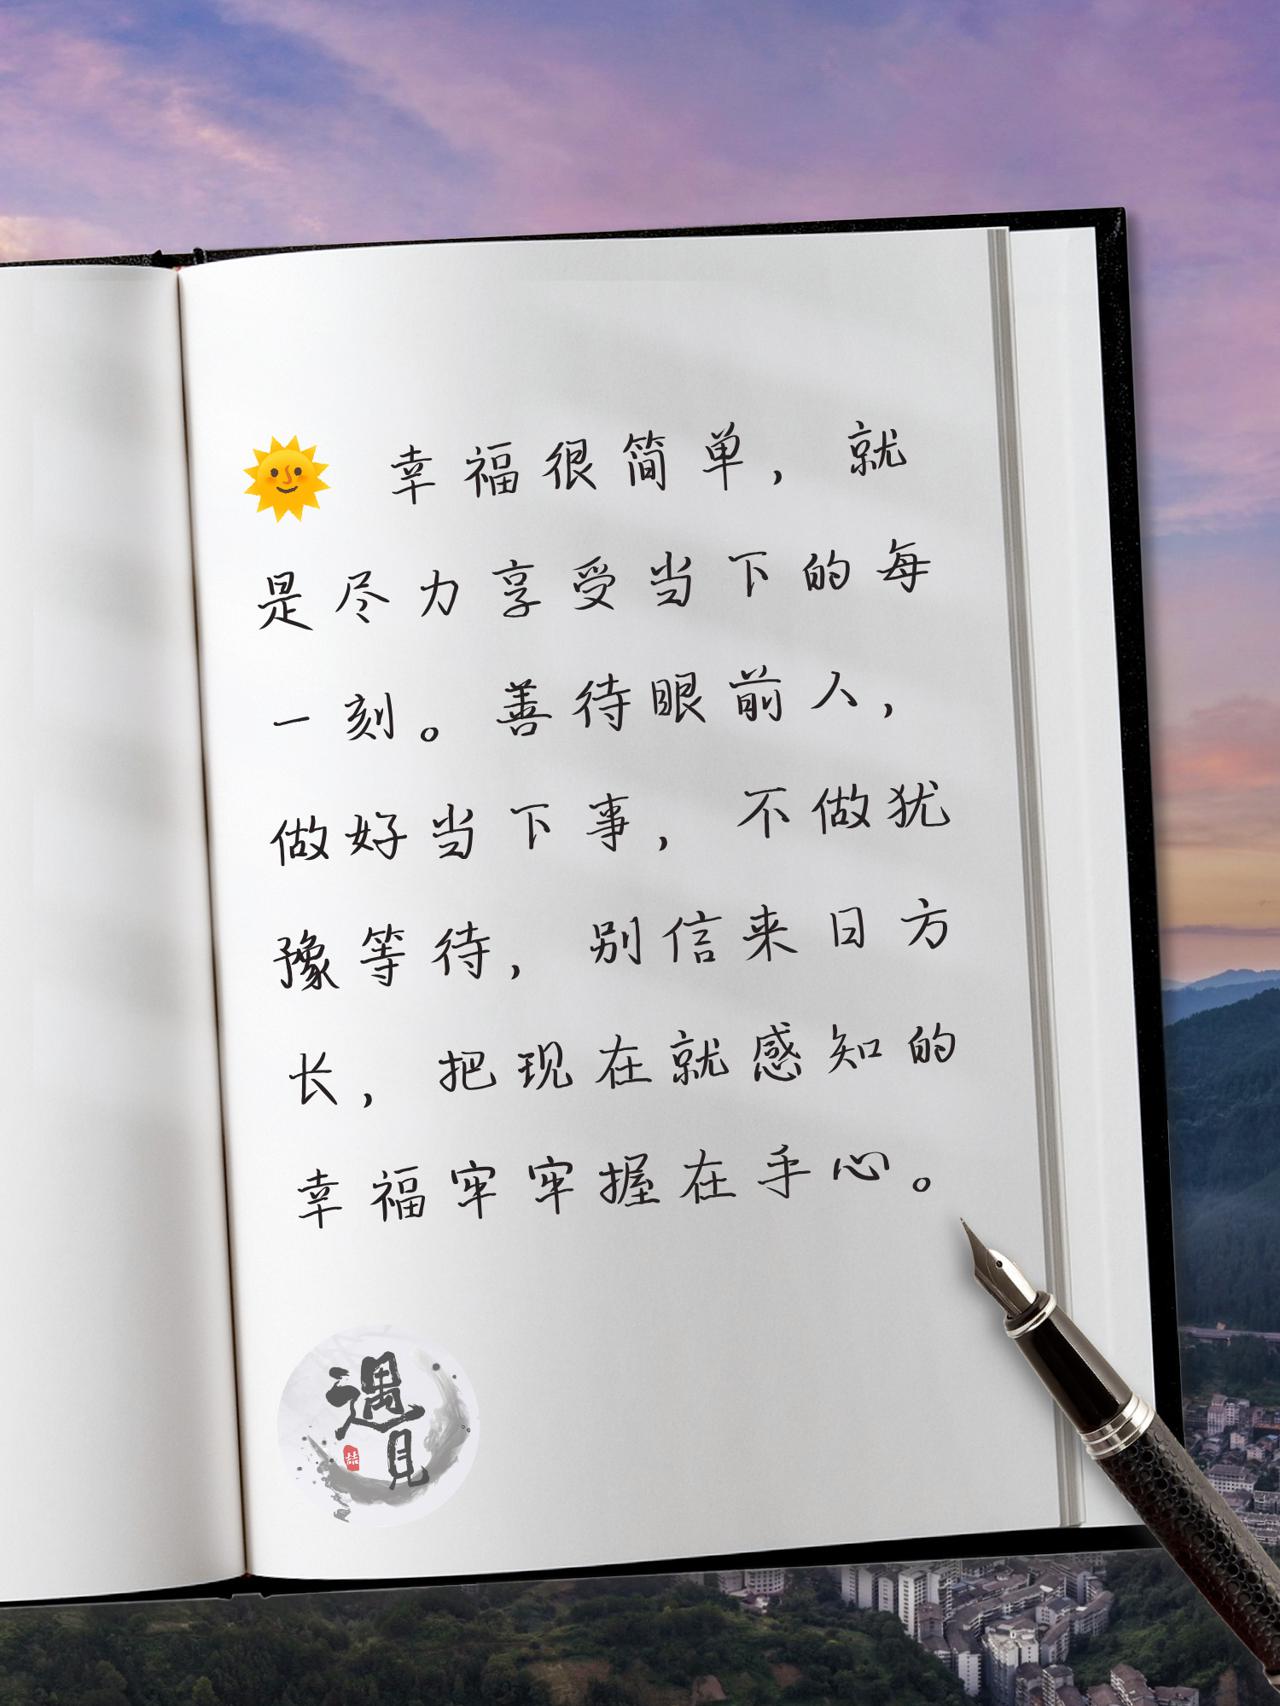 🌞 幸福很简单，就
是尽力享受当下的每
一刻。善待眼前人，
做好当下事，不做犹
豫等待，别信来日方
长，把现在就感知的
幸福牢牢握在手心。
遇
见
喆